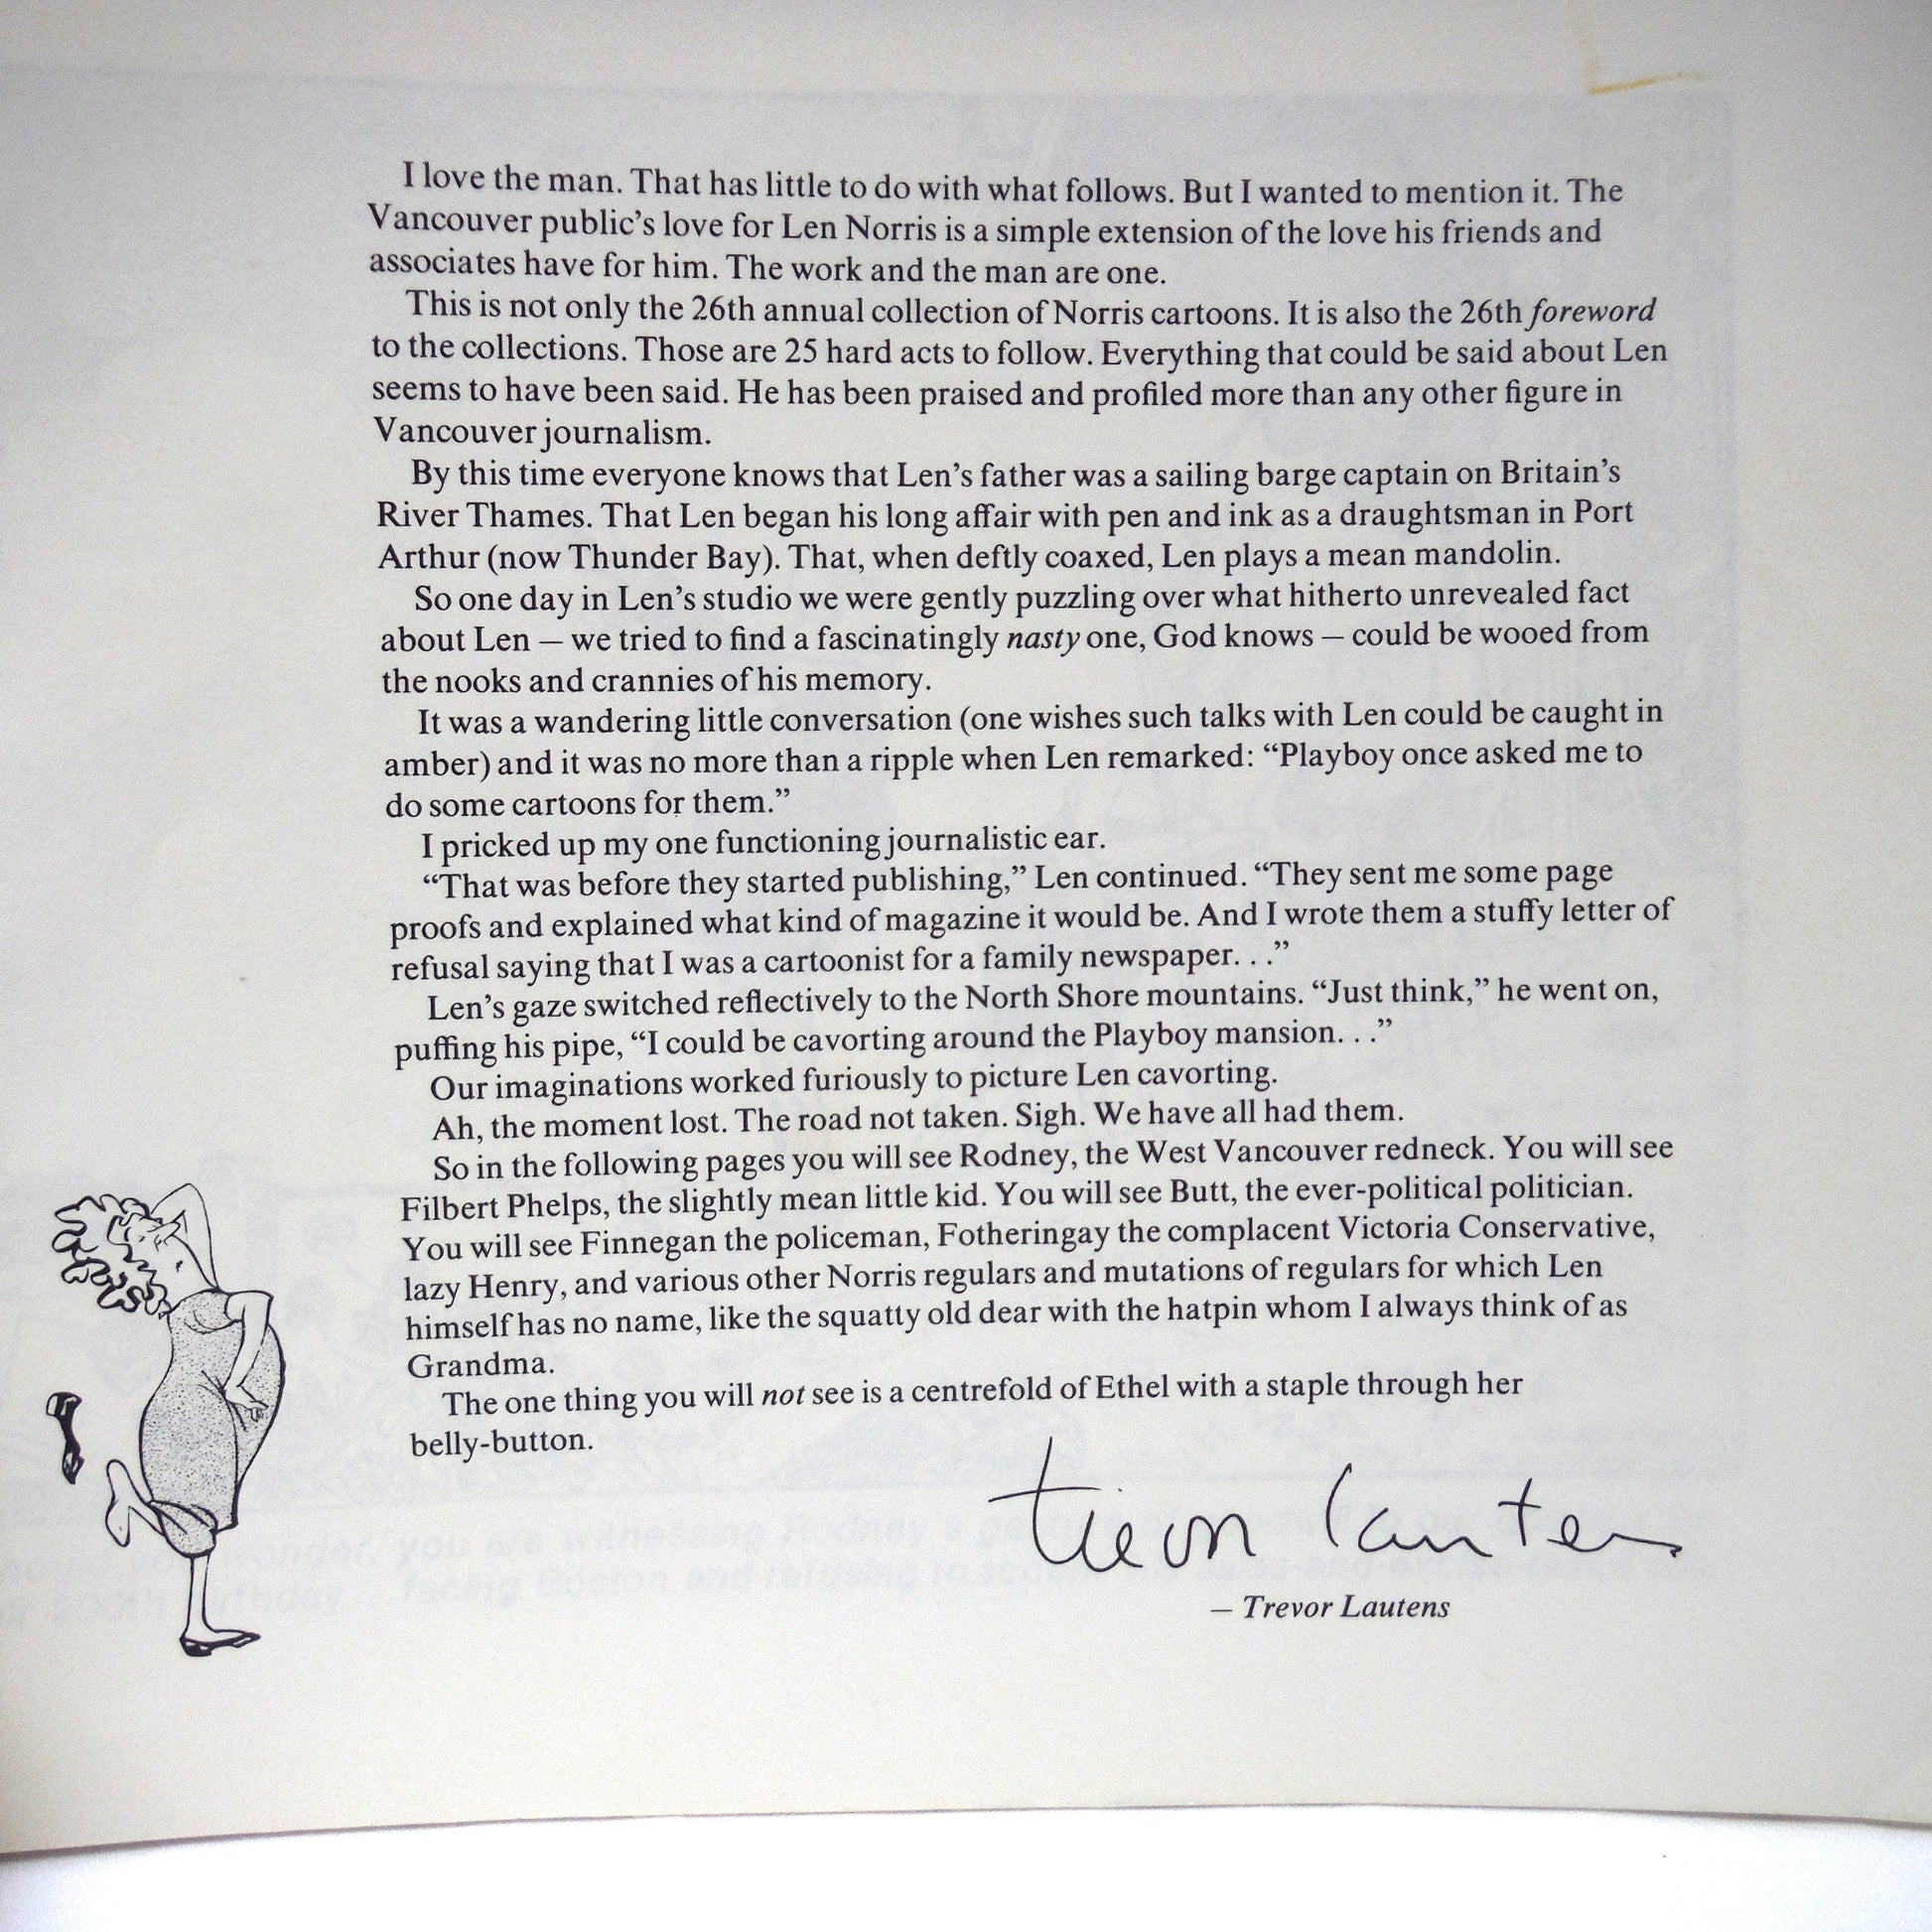 I love the man. That has little to do with what follows. But I wanted to mention it. The
Vancouver public’s love for Len Norris is a simple extension of the love his friends and
associates have for him. The work and the man are one.
This is not only the 26th annual collection of Norris cartoons. It is also the 26th foreword
to the collections. Those are 25 hard acts to follow. Everything that could be said about Len
seems to have been said. He has been praised and profiled more than any other figure in
Vancouver journalism.
By this time everyone knows that Len’s father was a sailing barge captain on Britain’s
River Thames. That Len began his long affair with pen and ink as a draughtsman in Port
Arthur (now Thunder Bay). That, when deftly coaxed, Len plays a mean mandolin.
So one day in Len’s studio we were gently puzzling over what hitherto unrevealed fact
about Len — we tried to find a fascinatingly nasty one, God knows — could be wooed from
the nooks and crannies of his memory.
It was a wandering little conversation (one wishes such talks with Len could be caught in
amber) and it was no more than a ripple when Len remarked: “Playboy once asked me to
do some cartoons for them.”
I pricked up my one functioning journalistic ear.
“That was before they started publishing,” Len continued. “They sent me some page
proofs and explained what kind of magazine it would be. And I wrote them a stuffy letter of
refusal saying that I was a cartoonist for a family newspaper. . .”
Len’s gaze switched reflectively to the North Shore mountains. “Just think,” he went on,
puffing his pipe, “I could be cavorting around the Playboy mansion. . .”
Our imaginations worked furiously to picture Len cavorting.
Ah, the moment lost. The road not taken. Sigh. We have all had them.
So in the following pages you will see Rodney, the West Vancouver redneck. You will see
Filbert Phelps, the slightly mean little kid. You will see Butt, the ever-political politician.
You will see Finnegan the policeman, Fotheringay the complacent Victoria Conservative,
lazy Henry, and various other Norris regulars and mutations of regulars for which Len
himself has no name, like the squatty old dear with the hatpin whom I always think of as
Grandma.
The one thing you will not see is a centrefold of Ethel with a staple through her
belly-button.
trevor lautens
— Trevor Lautens